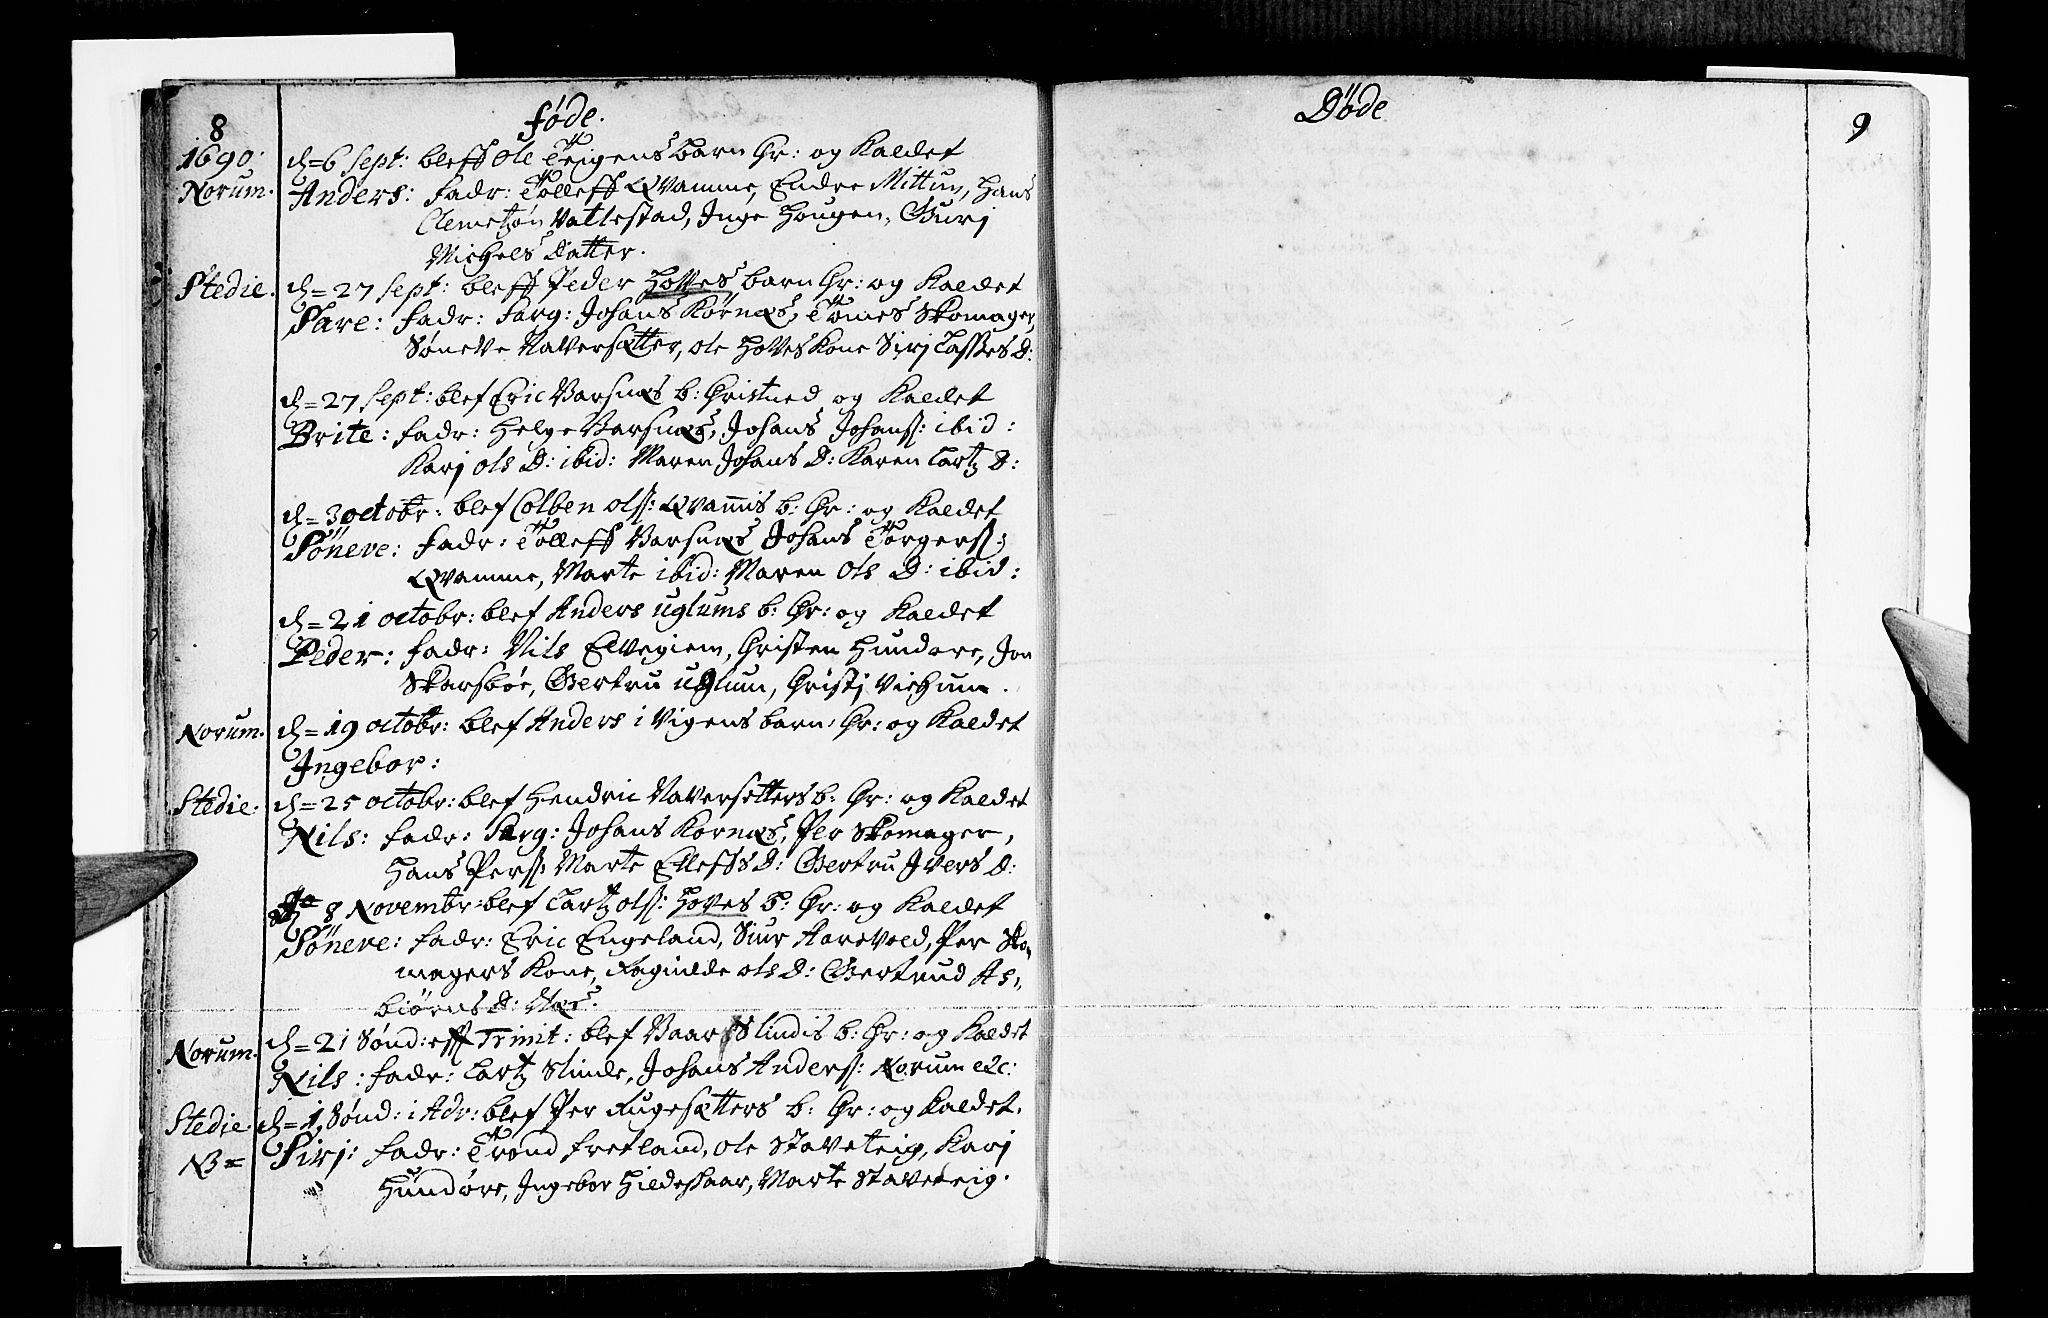 8 føde.
1690. d= 6 Sept: bleff Ole Teigens barn Chr: og Kaldet
Norum. Anders: fadr: Tolleff Qvamme, Endre Mittun, Hans
Clemetzøn Vallestad, Inge Hougen, Gurj
Michels Datter.
Stedie. d= 27 Sept: bleff Peder Hoves barn Chr: og Kaldet
Sare: fadr: Sarg: Johans Kørnæs, Tomes Skomager,
Søneve Naversætter, ole Hoves Kone Sirj Lasses D:
d= 27 Sept: blef Eric Barsnæs b: Christned og Kaldet
Brite: fadr: Helge Barsnæs, Johans Johans: ibid:
Karj ols D: ibid: Maren Johans D: Karen Lartz D:
d= 3 octobr: blef Colben ols: Qvammis b: Chr: og Kaldet
Søneve: fadr: Tolleff Barsnæs Johans Torgers:
Qvamme, Marte ibid: Maren Ols D: ibid:
d= 21 octobr: blef Anders uglums b: Chr: og Kaldet
Peder: fadr: Nils Elvegiem, Christen Hundere, Jon
Skarsbøe, Gertru uglum, Christj Viehum.
Norum. d= 19 octobr: blef Anders i Vigens barn Chr: og Kaldet
Ingebor:
Stedie. d= 25 octobr: blef Hendric Naversetters b: Chr: og Kaldet
Nils: fadr: Sarg: Johans Kornæs, Per Skomager,
Hans Pers: Marte Elleffs D: Gertru Ivers D:
8 Novembr: blef Lartz ols: Hoves b: Chr: og Kaldet
Søneve: fadr: Eric Engeland, Siur Aarevold, Per Sko
magers Kone, Ragnilde ols D: Gertrud As,
biørns D: Næs.
Norum. d= 21 Sønd: eff Trinit: blef Baars Slindis b: Chr: og Kaldet
Nils: fadr: Lartz Slinde, Johans Anders: Norum etc:
Stedie d= 1, Sønd: i Adv: blef Per Rugesætters b: Chr: og Kaldet.
NB= Sirj: fadr: Trond fretland, ole Staveteig, Karj
Hundøre, Ingebor Hildeshaar, Marte Staveteig.
Døde
9